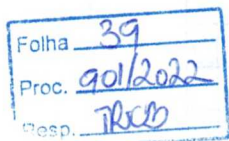 Folha 39
Proc. 901/2022
Resp.